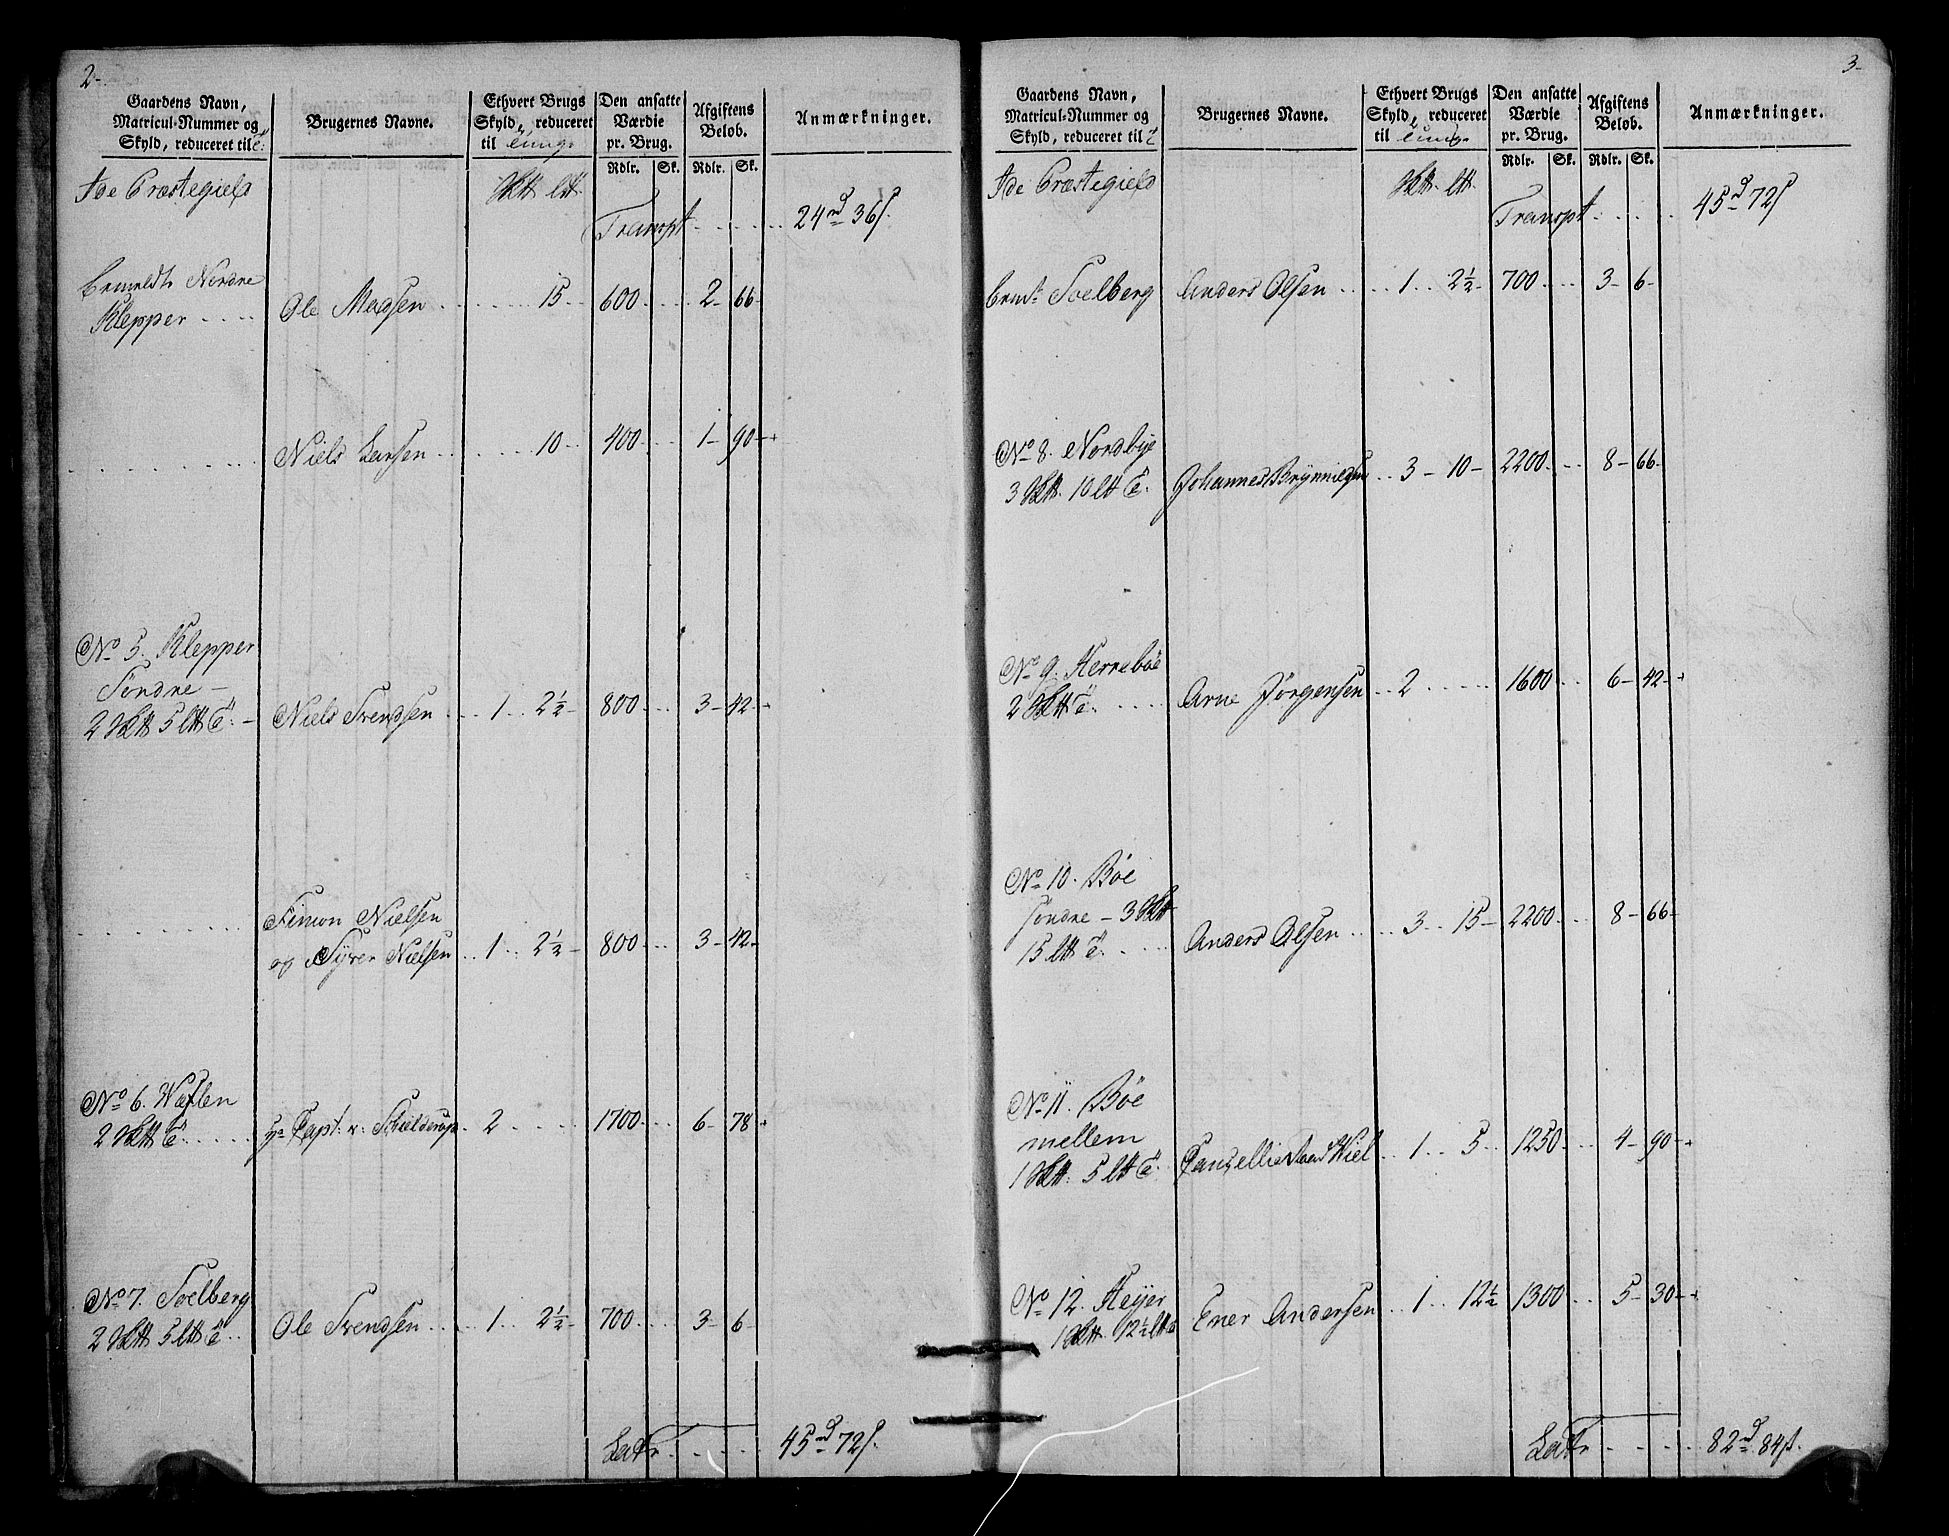 2-
Gaardens Navn,
Matricul-Nummer og
Skyld, reduceret til
Brugernes Navne.
Ethvert Brugs
Skyld, reduceret
til
Den ansatte
Værdie
pr. Brug.
Rdlr. Sk.
Afgiftens
Beløb.
Rdlr. Sk.
Anmærkninger.
Ide Præstegield
Transpt 24 rd 36 s.
bemeldte Nordre
Klepper Ole Madsen 15 600 2 66
Niels Larsen 10 400 1 90
No 5. Klepper
Søndre
2 5 Niels Svendsen 1 2½ 800 3 42
Simon Nielsen
og Syver Nielsen 1 2½ 800 3 42
No 6.
2 Capt. v. Schielderup 2 1700 6 78
No 7. Soelberg
2 5 Ole Svendsen 1 2½ 700 3 6
Latr 45 rd 72 s.
3-
Gaardens Navn,
Matricul-Nummer og
Skyld, reduceret til
Brugernes Navne.
Ethvert Brugs
Skyld, reduceret
til
Den ansatte
Værdie
pr. Brug.
Rdlr. Sk.
Afgiftens
Beløb.
Rdlr. Sk.
Anmærkninger.
Ide Præstegield
Transpt 45 rd 72 s
bemte Soelberg Anders Olsen 1 2½ 700 3 6
No 8. Nordbye
3 10 Johannes Brynnildsen 3 10 2200 8 66
No 9. Herrebøe
2 Arne Jørgensen 2 1600 6 42
No 10. Bøe
søndre 3
15 Anders Olsen 3 15 2200 8 66
No 11. Bøe
mellem
1 5 Cancellie Raad Wiel 1 5 1250 4 90
No 12. Heyer
1 12½ Ener Andersen 1 12½ 1300 5 30
Latr 82 rd 84 s.